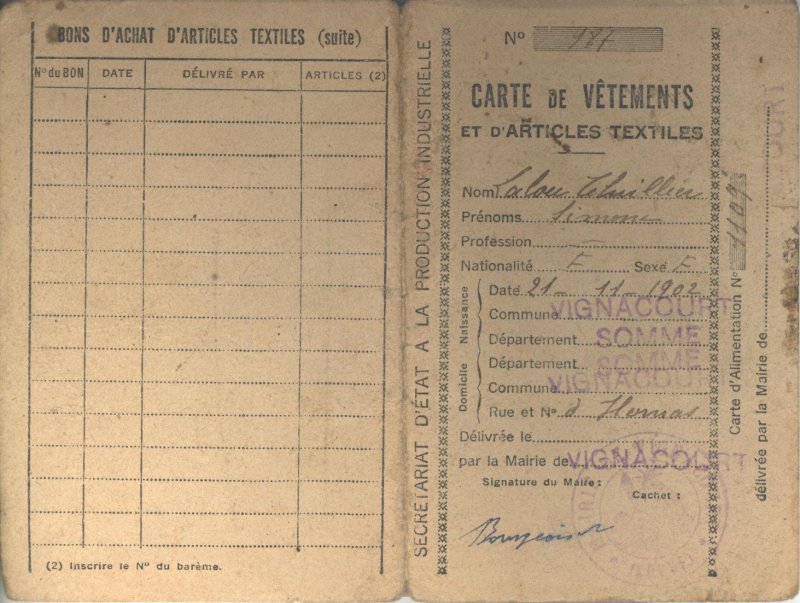 BONS D'ACHAT D'ARTICLES TEXTILES (suite)
N° du BON DATE DÉLIVRÉ PAR ARTICLES (2)
(2) Inscrire le N° du barème.
SECRÉTARIAT D'ÉTAT A LA PRODUCTION INDUSTRIELLE
N° 987
CARTE DE VÊTEMENTS
ET D'ARTICLES TEXTILES
Nom Lalou Thuillier
Prénoms Simone
Profession —
Nationalité F Sexe F
Naissance
Date 21 - 11 - 1902
Commune VIGNACOURT
Département SOMME
Domicile
Département SOMME
Commune VIGNACOURT
Rue et N° d'Hornas
Délivrée le
par la Mairie de VIGNACOURT
Signature du Maire :
Cachet :
Carte d'Alimentation N° 1109
délivrée par la Mairie de